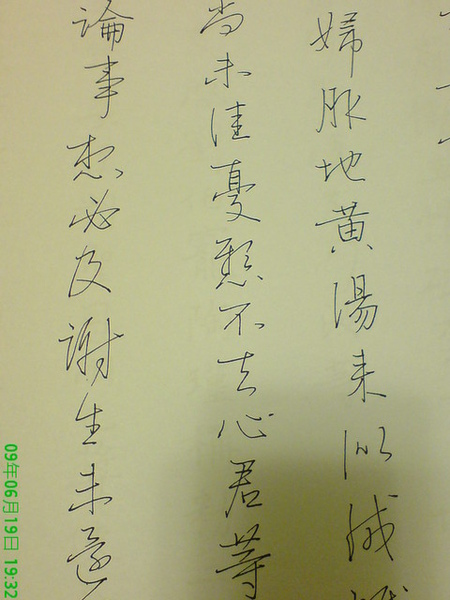 婦服地黃湯来似減
尚未佳憂懸不去心君等
論事想必及謝生未還
09年06月19日 19:32